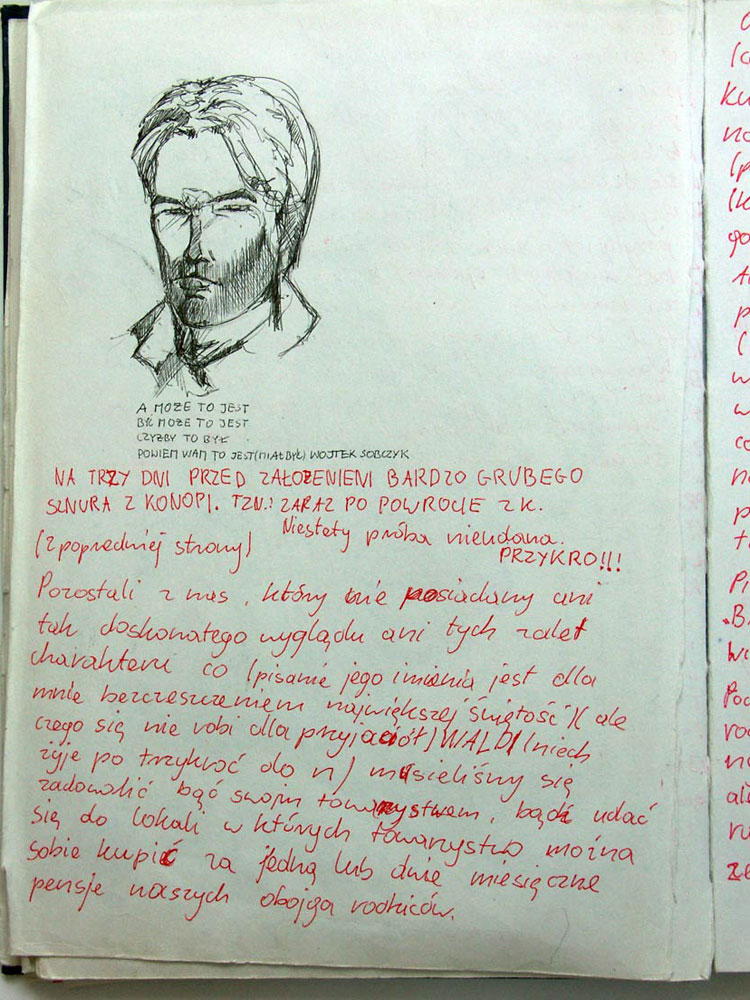 A MOŻE TO JEST
BYĆ MOŻE TO JEST
CZYŻBY TO BYŁ
POWIEM WAM TO JEST (MIAŁ BYĆ) WOJTEK SOBCZYK
NA TRZY DNI PRZED ZAŁOŻENIEM BARDZO GRUBEGO
SZNURA Z KONOPI. TZN.: ZARAZ PO POWROCIE Z K.
Niestety próba nieudana.
PRZYKRO!!!
(z poprzedniej strony)
Pozostali z nas, który nie posiadamy ani
tak doskonałego wyglądu ani tych zalet
charakteru co (pisanie jego imienia jest dla
mnie bezczeszczeniem największej "świętości") (ale
czego się nie robi dla przyjaciół) WALDI (niech
żyje po trzykroć do n) musieliśmy się
zadowolić bąć swoim towarzystwem, bądź udać
się do lokali w których towarzystwo można
sobie kupić za jedną lub dwie miesięczne
pensje naszych obojga rodziców.